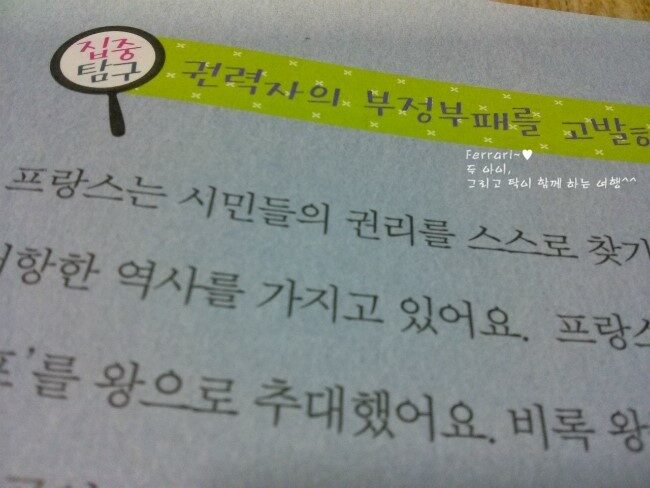 집중
탐구
권력자의 부정부패를 고발
Ferrari~♥
두 아이,
그리고 탁이 함께 하는 여행^^
프랑스는 시민들의 권리를 스스로 찾기
항한 역사를 가지고 있어요. 프랑스
를 왕으로 추대했어요. 비록 왕